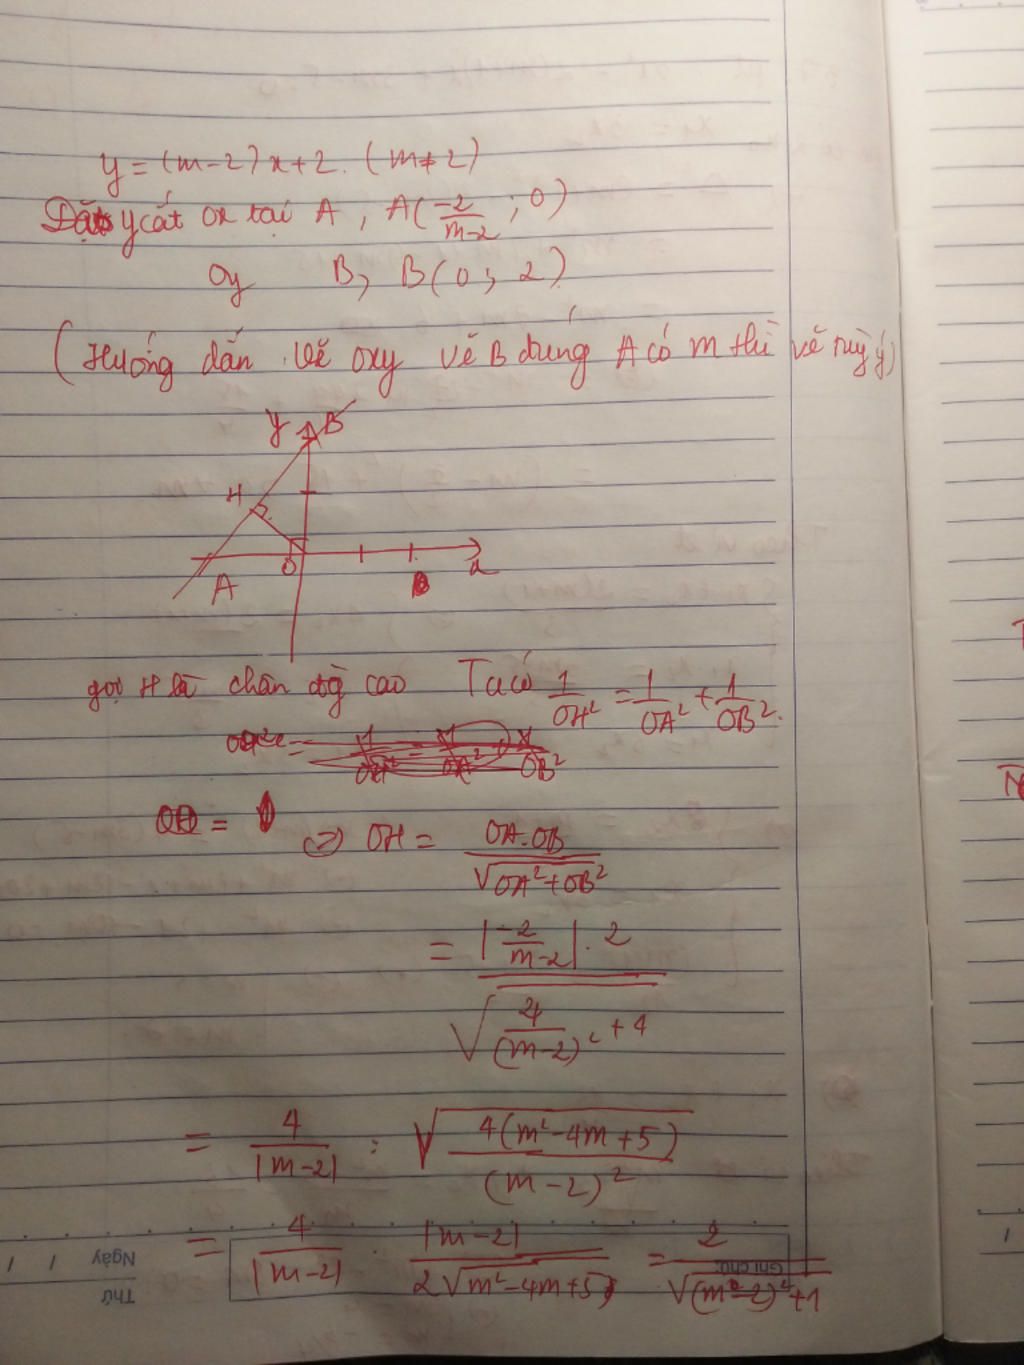 y = (m-2)x+2. (m≠2)
y cắt ox tại A, A(-2/m-2 ; 0)
Oy B, B(0; 2)
(Hướng dẫn vẽ oxy vẽ B đúng A có m thì vẽ tùy ý)
y B
H
A O x
gọi H là chân đg cao Ta có 1/OH² = 1/OA² + 1/OB².
=> OH = OA.OB/√OA²+OB²
= |-2/m-2|. 2
√4/(m-2)² + 4
= 4/|m-2| : √4(m²-4m+5)/(m-2)²
= 4/|m-2| . |m-2|/2√m²-4m+5 = 2/√(m-2)²+1
Ghi chú:
Ngày / /
Thứ